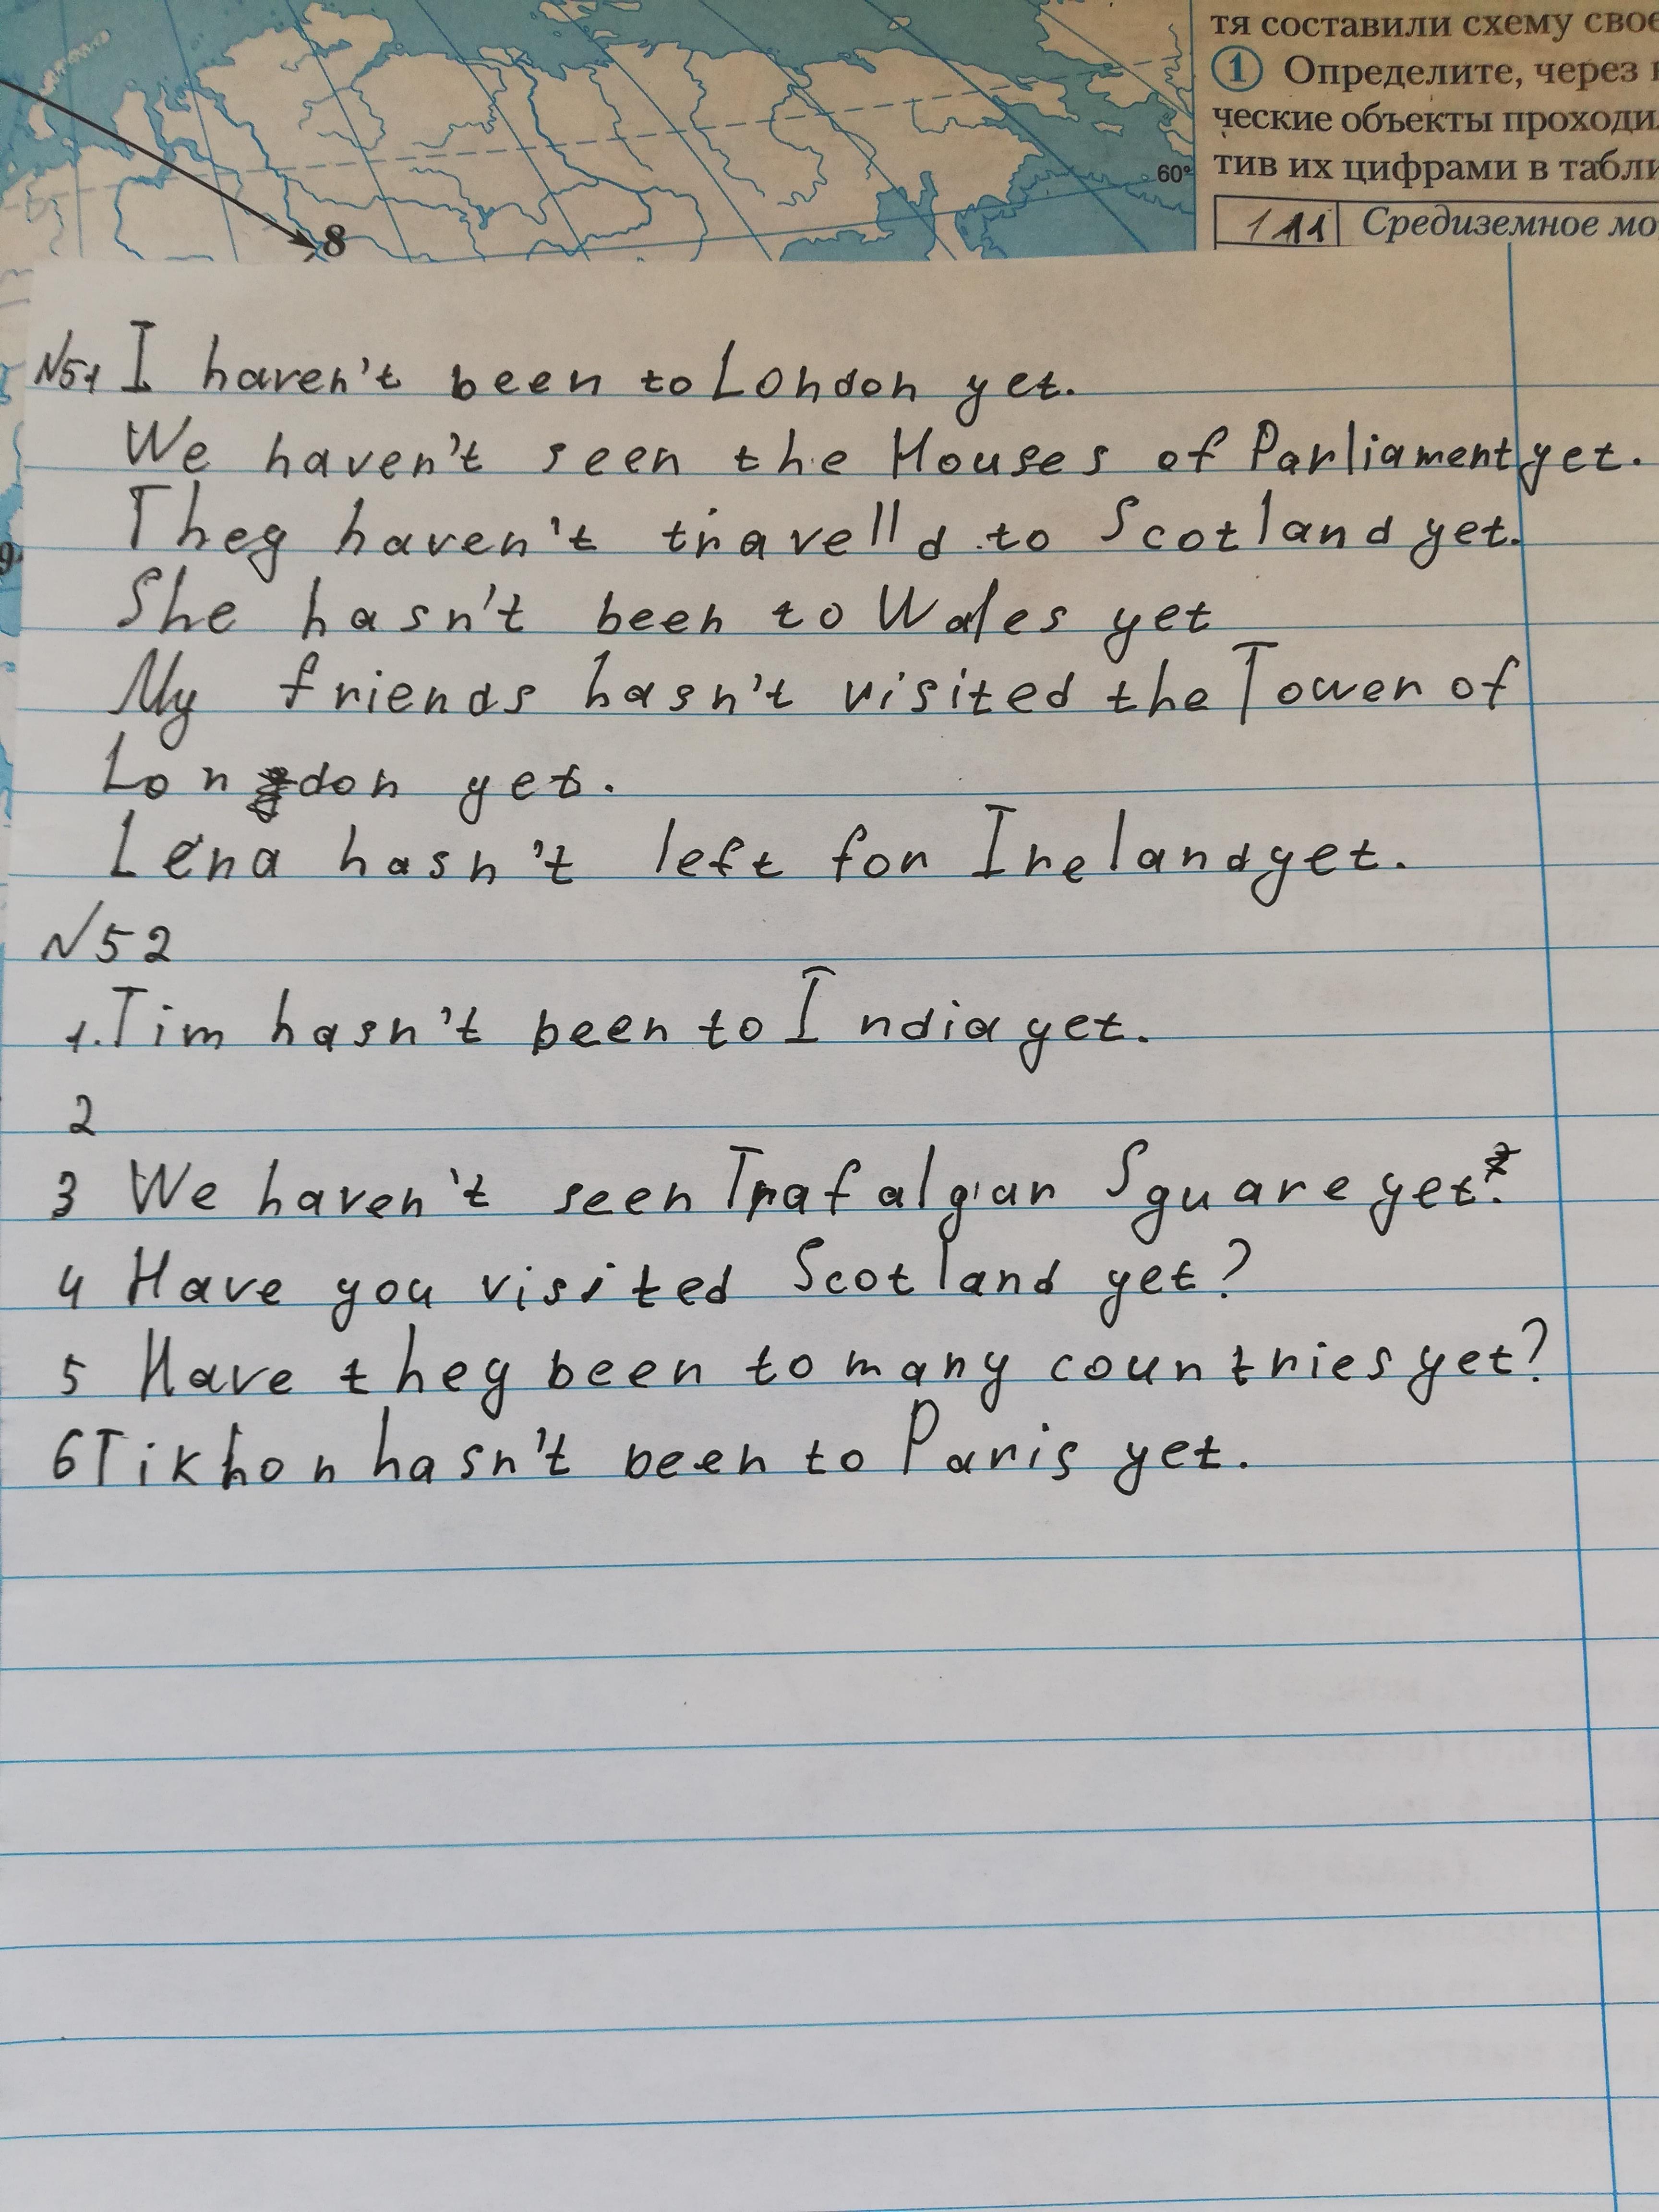 тя составили схему свое
1 Определите, через
ческие объекты проходи
тив их цифрами в табли
60°
111 Средиземное мо
8
9
№51 I haven't been to London yet.
We haven't seen the Houses of Parliament yet.
They haven't travelld to Scotland yet.
She hasn't been to Wales yet
My friends hasn't visited the Tower of
London yet.
Lena hasn't left for Ireland yet.
№52
1. Tim hasn't been to India yet.
2
3 We haven't seen Trafalgar Square yet.
4 Have you visited Scotland yet?
5 Have they been to many countries yet?
6 Tikhon hasn't been to Paris yet.